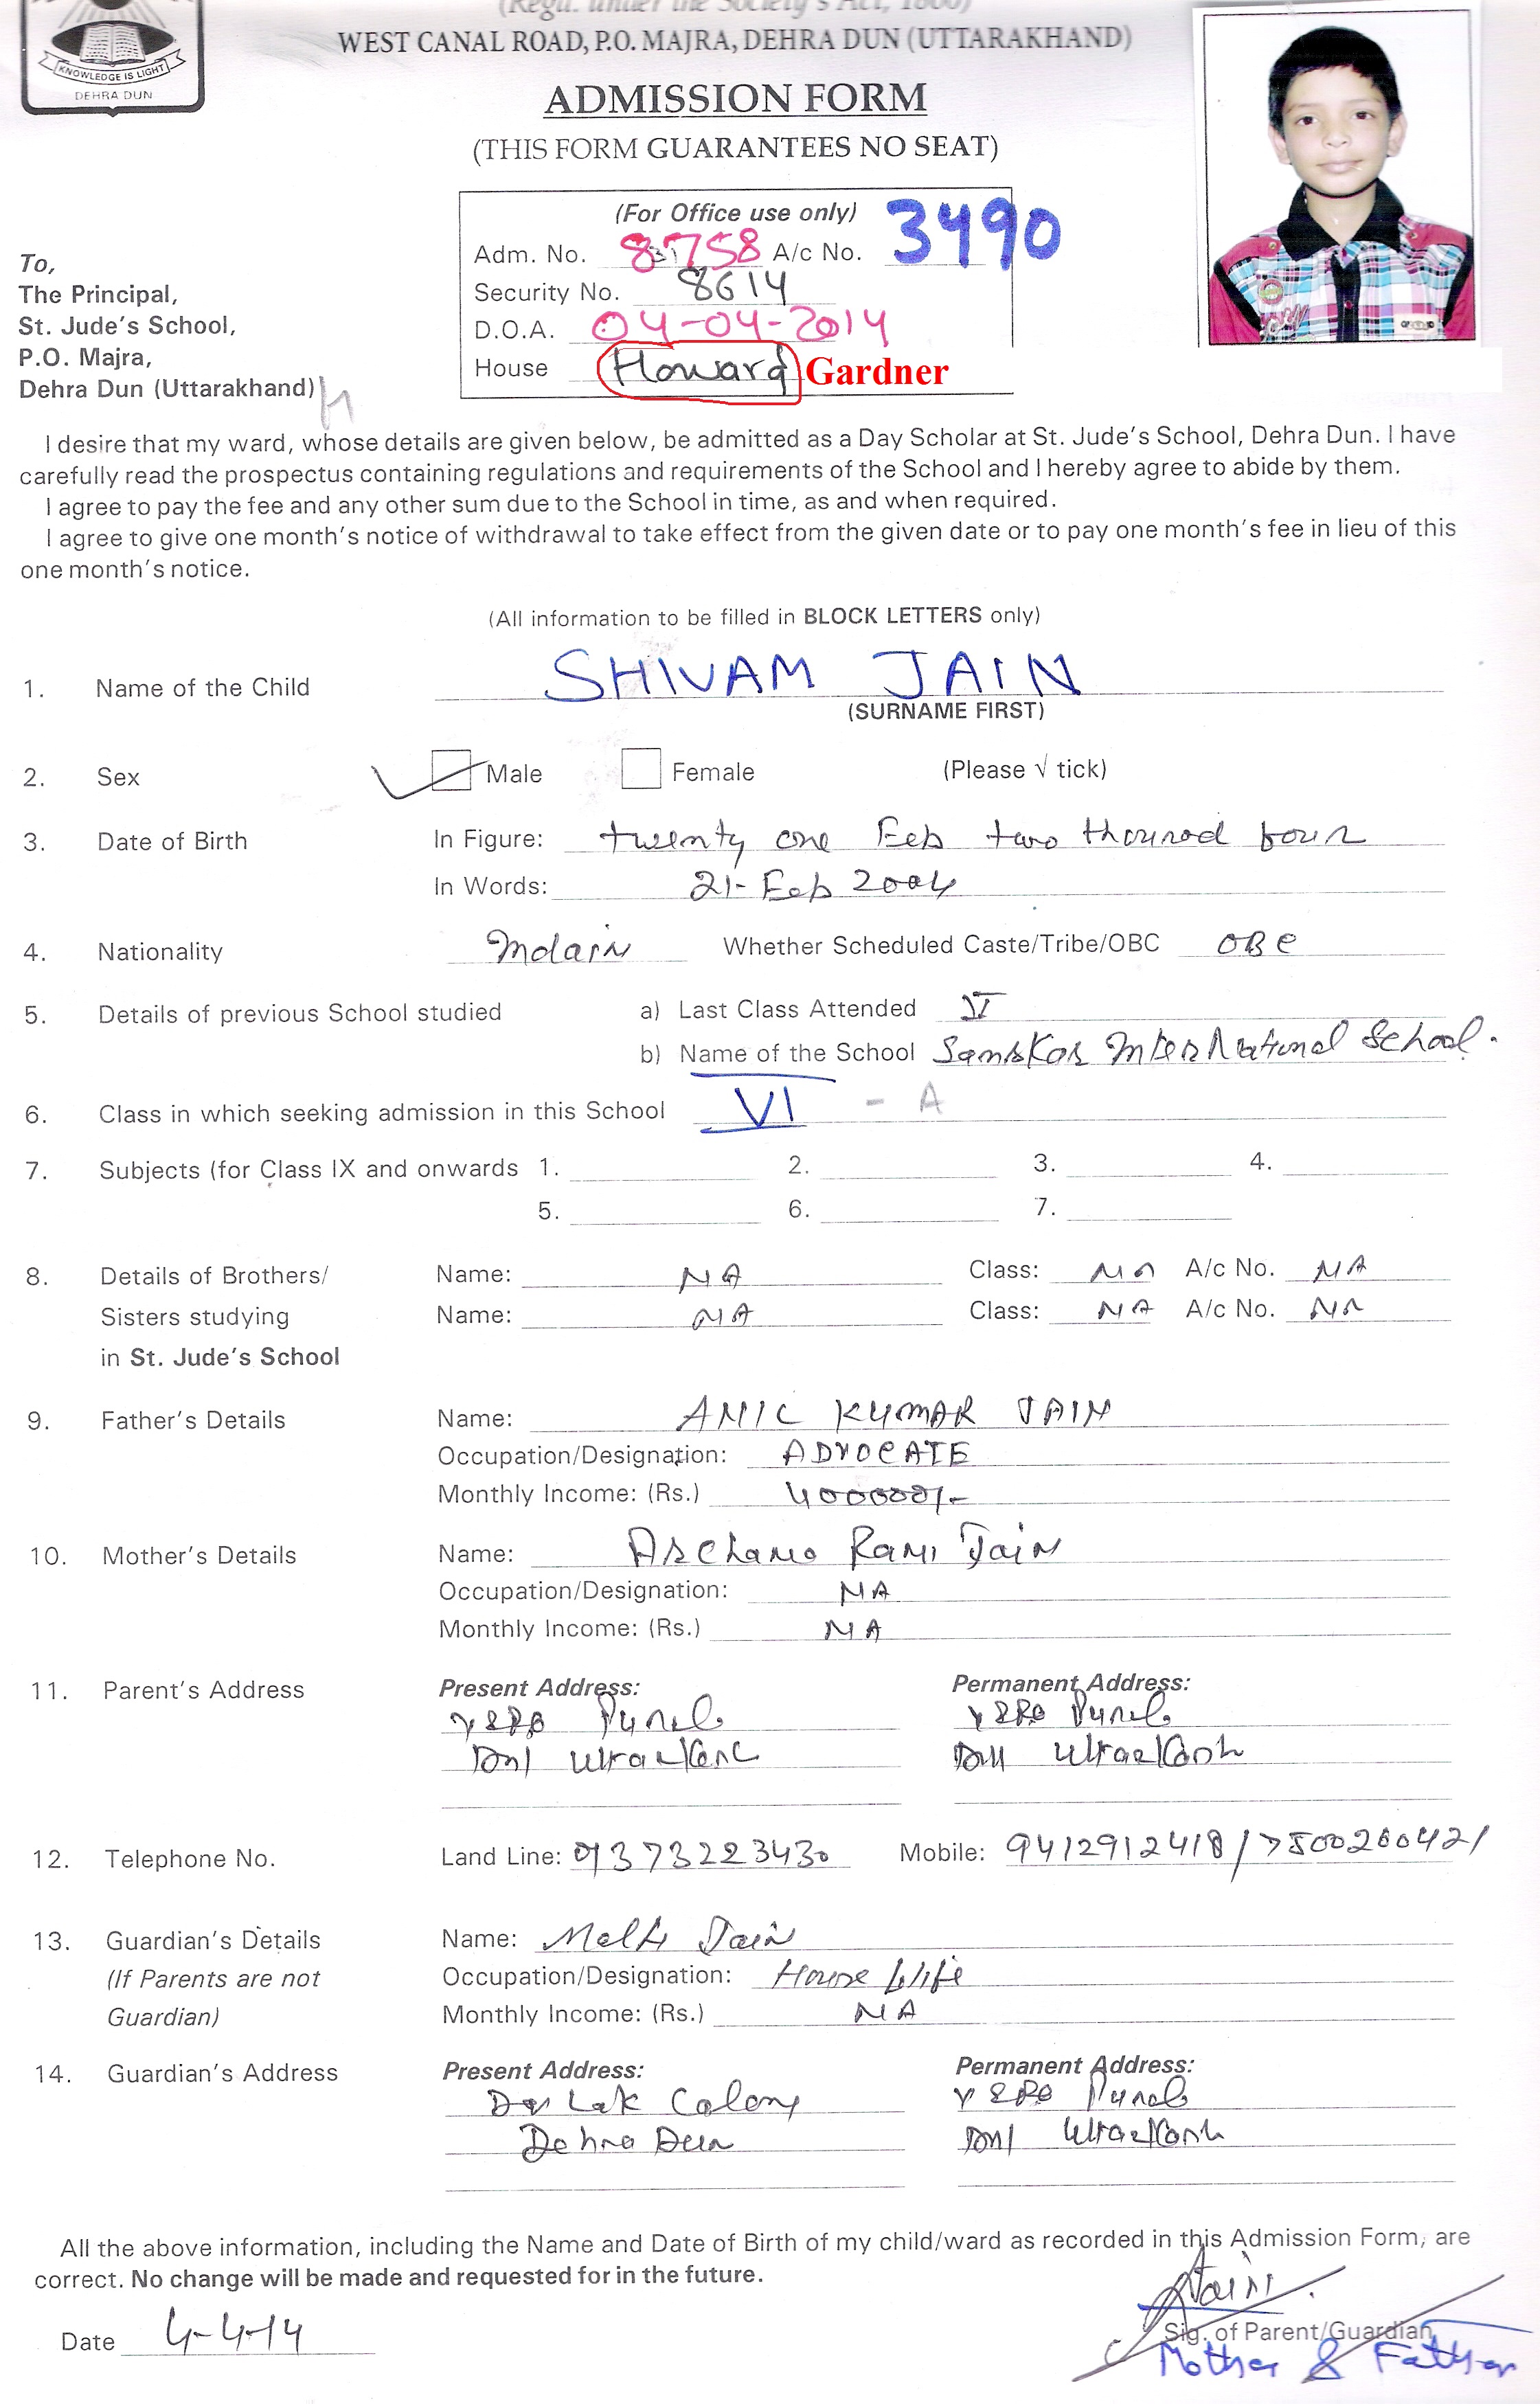 (Regd. under the Society's Act, 1860)
WEST CANAL ROAD, P.O. MAJRA, DEHRA DUN (UTTARAKHAND)
KNOWLEDGE IS LIGHT
DEHRA DUN
ADMISSION FORM
(THIS FORM GUARANTEES NO SEAT)
(For Office use only)
Adm. No. 8758 A/c No. 3490
Security No. 8614
D.O.A. 04-04-2014
House Howard Gardner
To,
The Principal,
St. Jude's School,
P.O. Majra,
Dehra Dun (Uttarakhand)
I desire that my ward, whose details are given below, be admitted as a Day Scholar at St. Jude's School, Dehra Dun. I have
carefully read the prospectus containing regulations and requirements of the School and I hereby agree to abide by them.
I agree to pay the fee and any other sum due to the School in time, as and when required.
I agree to give one month's notice of withdrawal to take effect from the given date or to pay one month's fee in lieu of this
one month's notice.
(All information to be filled in BLOCK LETTERS only)
1. Name of the Child SHIVAM JAIN
(SURNAME FIRST)
2. Sex Male Female (Please √ tick)
3. Date of Birth In Figure: twenty one Feb two thousnd four
In Words: 21-Feb 2004
4. Nationality Indain Whether Scheduled Caste/Tribe/OBC OBC
5. Details of previous School studied a) Last Class Attended V
b) Name of the School Sanskar International School.
6. Class in which seeking admission in this School VI - A
7. Subjects (for Class IX and onwards 1. 2. 3. 4.
5. 6. 7.
8. Details of Brothers/ Name: NA Class: NA A/c No. NA
Sisters studying Name: NA Class: NA A/c No. NA
in St. Jude's School
9. Father's Details Name: ANIL KUMAR JAIN
Occupation/Designation: ADVOCATE
Monthly Income: (Rs.)
10. Mother's Details Name: Archana Rani Jain
Occupation/Designation: NA
Monthly Income: (Rs.) NA
11. Parent's Address Present Address: Permanent Address:
12. Telephone No. Land Line: 01373223430 Mobile: 9412912418/7500260421
13. Guardian's Details Name: Jain
(If Parents are not Occupation/Designation: House Wife
Guardian) Monthly Income: (Rs.) NA
14. Guardian's Address Present Address: Permanent Address:
Colony
Dehra Dun
All the above information, including the Name and Date of Birth of my child/ward as recorded in this Admission Form, are
correct. No change will be made and requested for in the future.
Date 4-4-14
Sig. of Parent/Guardian
Mother & Father